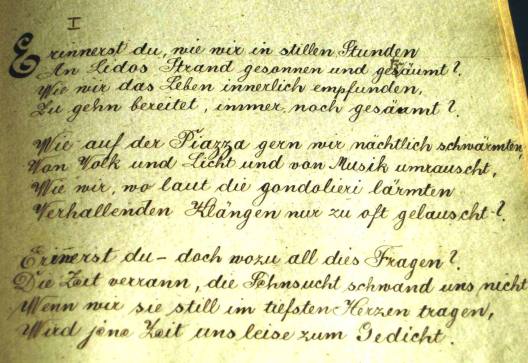 I
Erinnerst du, wie wir in stillen Stunden
An Lidos Strand gesonnen und gesäumt?
Wie wir das Leben innerlich empfunden,
Zu gehn bereitet, immer noch gesäumt?
Wie auf der Piazza gern wir nächtlich schwärmten,
Von Volk und Licht und von Musik umrauscht,
Wie wir, wo laut die gondolieri lärmten
Verhallenden Klängen nur zu oft gelauscht-?
Erinnerst du - doch wozu all dies Fragen?
Die Zeit verrann, die Sehnsucht schwand uns nicht
Wenn wir sie still im tiefsten Herzen tragen,
Wird jene Zeit uns leise zum Gedicht.